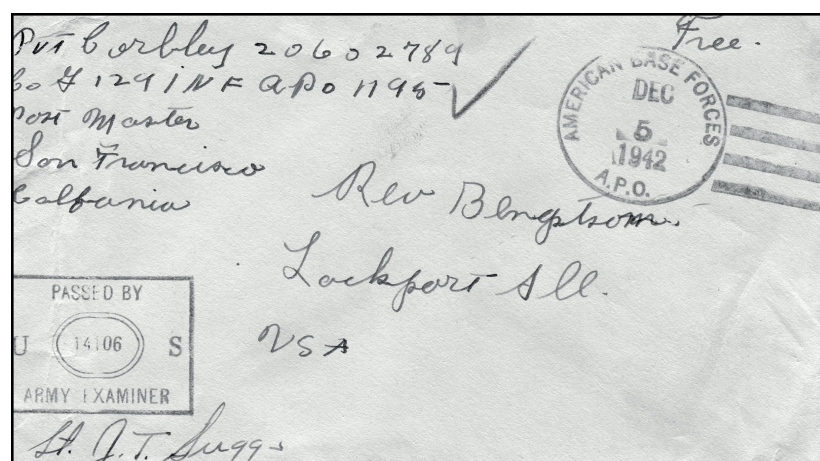 Pvt Corbley 20602789
Co G 129 INF APO 1195
Post Master
San Francisco
Calfania
Free.
AMERICAN BASE FORCES
DEC
5
1942
A.P.O.
Rev Bengtson.
Lockport Ill.
USA
PASSED BY
U 14106 S
ARMY EXAMINER
Lt. J.T. Suggs